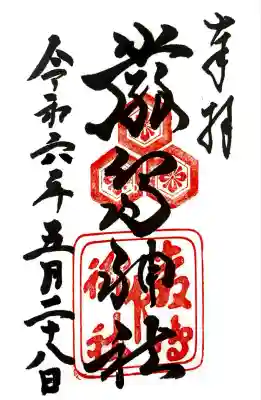 奉拝
嚴島神社
令和六年五月二十八日